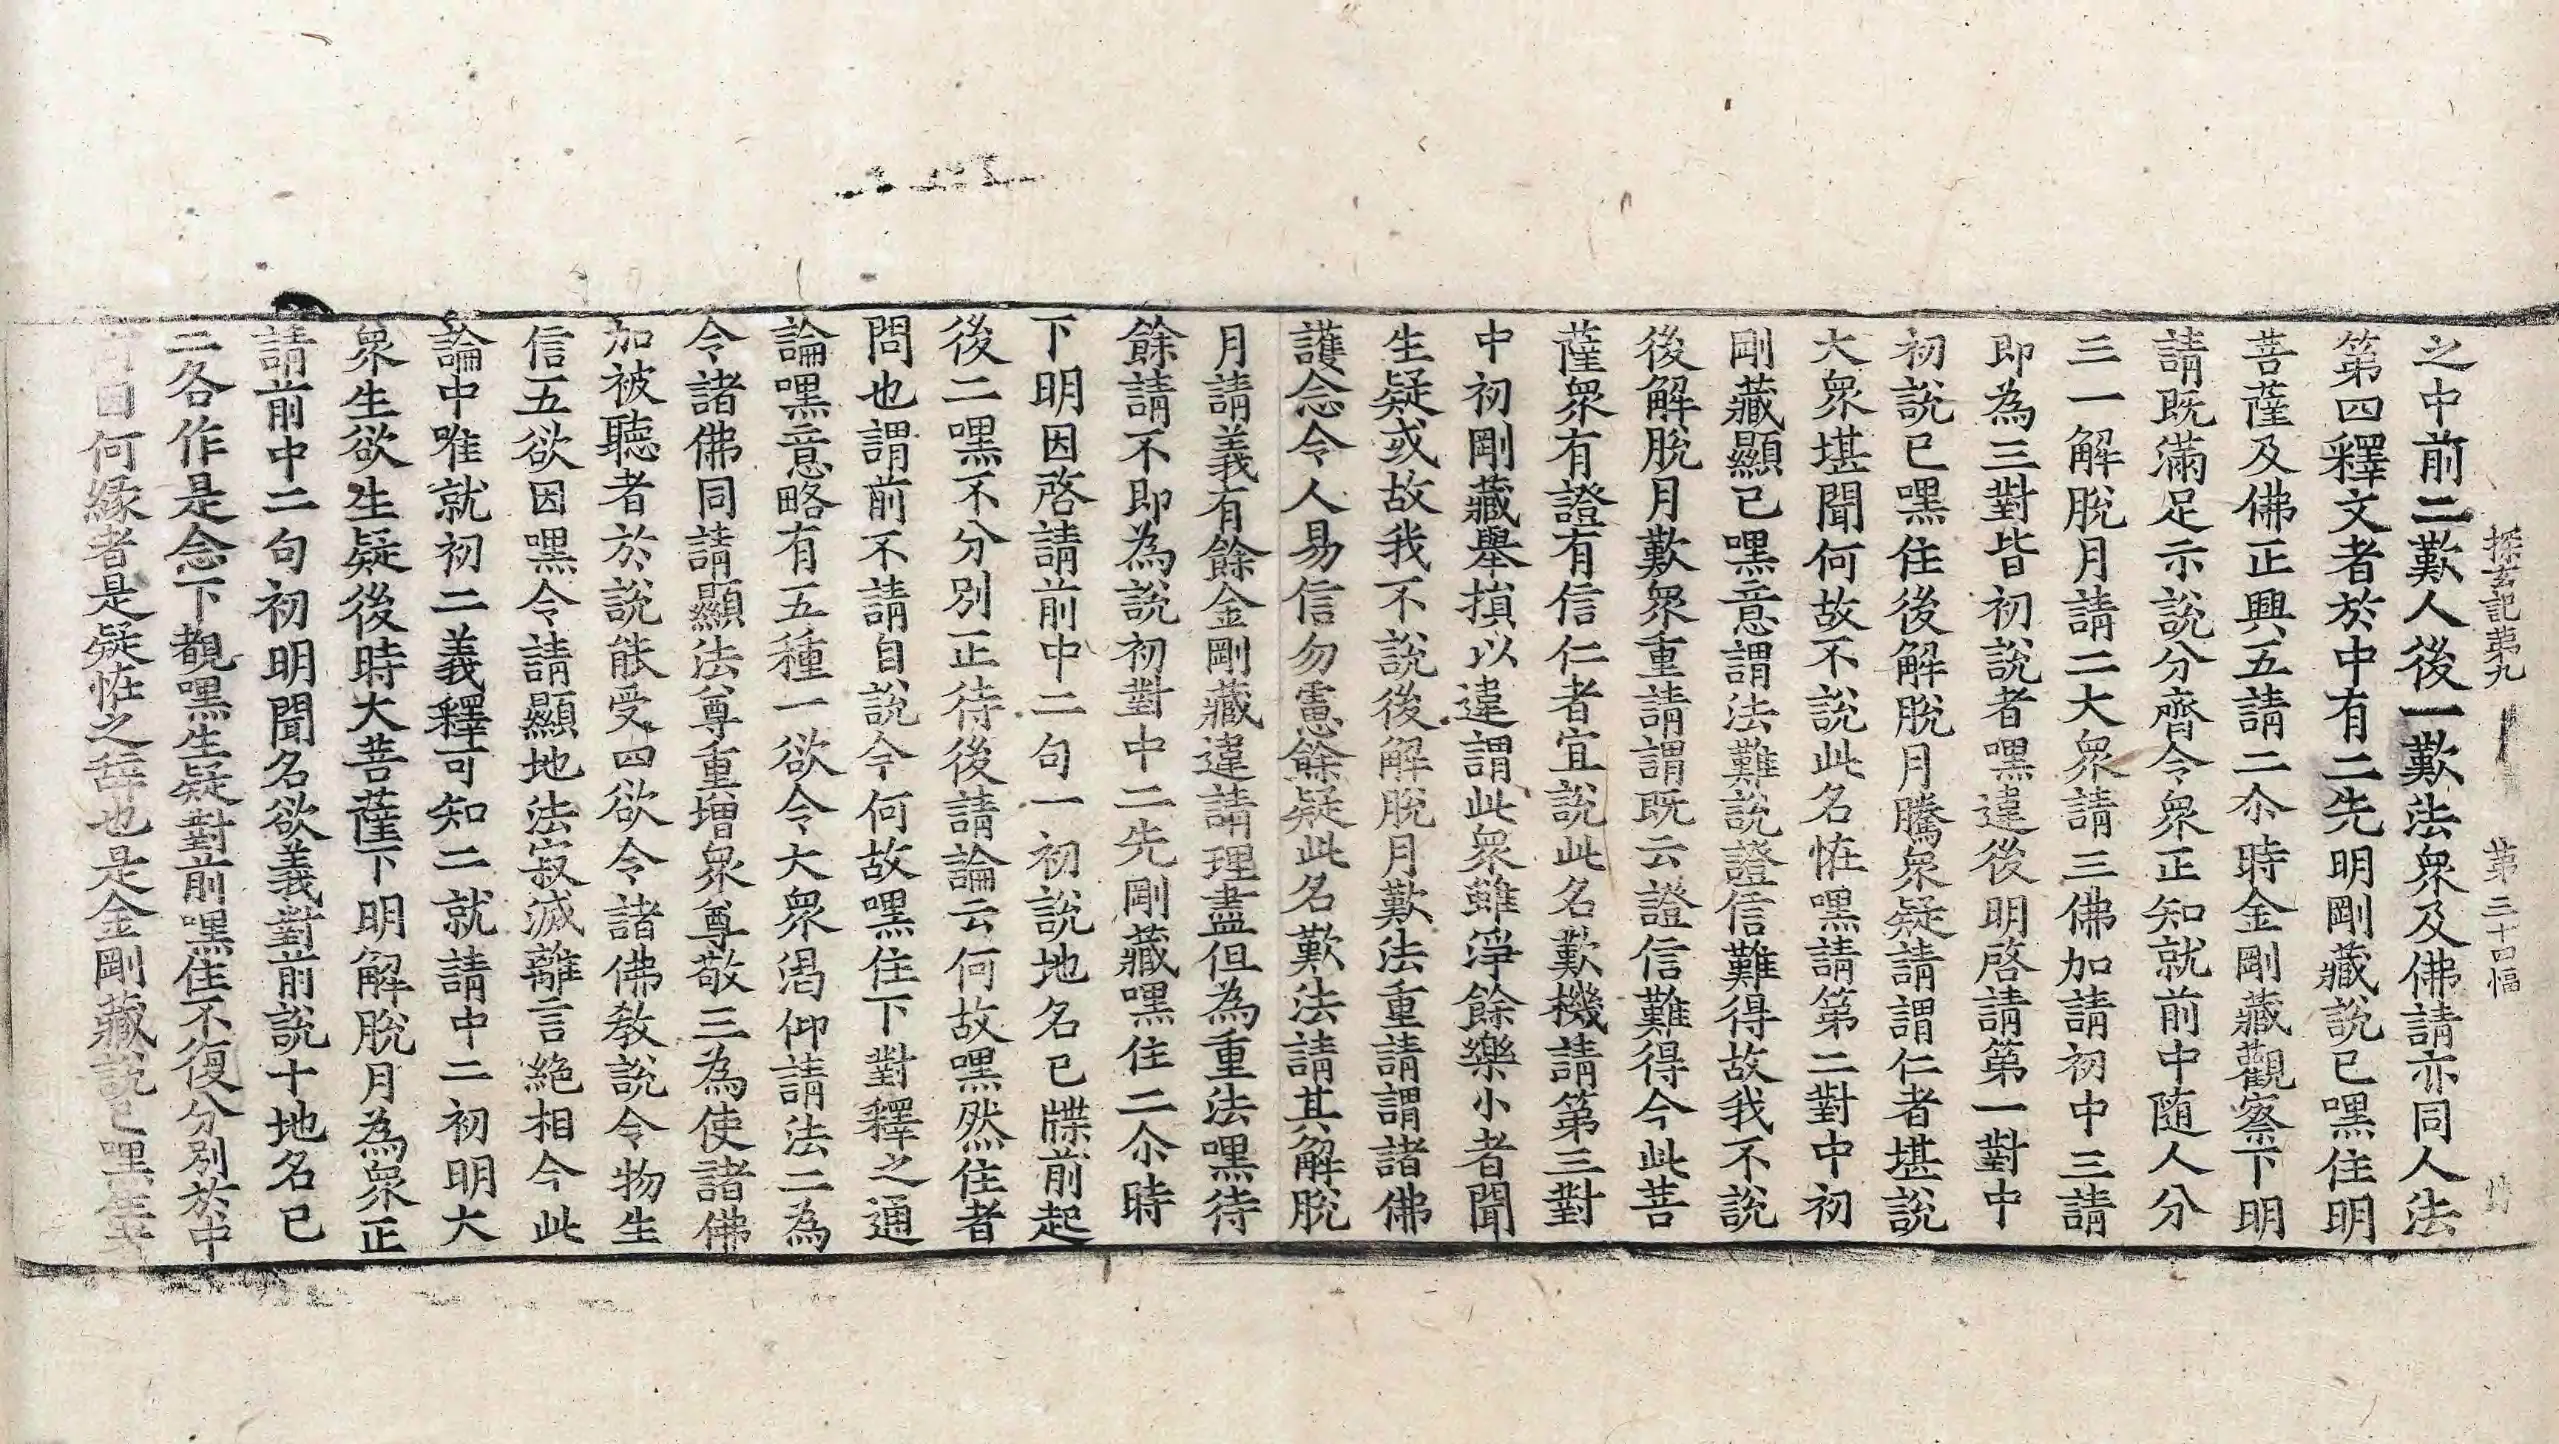 探玄記第九　第三十四幅
之中前二歎人後一歎法衆及佛請亦同人法
第四釋文者於中有二先明剛藏說已嘿住明
菩薩及佛正興五請二尒時金剛藏觀察下明
請既滿足示說分齊令衆正知就前中随人分
三一解脫月請二大衆請三佛加請初中三請
即為三對皆初說者嘿違後明啓請第一對中
初說已嘿住後解脫月騰衆疑請謂仁者堪說
大衆堪聞何故不說此名恠嘿請第二對中初
剛藏顯已嘿意謂法難說證信難得故我不說
後解脫月歎衆重請謂既云證信難得今此菩
薩衆有證有信仁者宜說此名歎機請第三對
中初剛藏舉損以違謂此衆雖淨餘樂小者聞
生疑或故我不說後解脫月歎法重請謂諸佛
護念令人易信勿慮餘疑此名歎法請其解脫
月請義有餘金剛藏違請理盡但為重法嘿待
餘請不即為說初對中二先剛藏嘿住二尒時
下明因啓請前中二句一初說地名已牒前起
後二嘿不分別正待後請論云何故嘿然住者
問也謂前不請自說今何故嘿住下對釋之通
論嘿意略有五種一欲令大衆渴仰請法二為
令諸佛同請顯法尊重增衆尊敬三為使諸佛
加被聽者於說能受四欲令諸佛教說令物生
信五欲因嘿令請顯地法寂滅離言絶相今此
論中唯就初二義釋可知二就請中二初明大
衆生欲生疑後時大菩薩下明解脫月為衆正
請前中二句初明聞名欲義對前說十地名已
二各作是念下覩嘿生疑對前嘿住不復分別於中
何因何緣者是疑恠之辞也是金剛藏說已嘿然